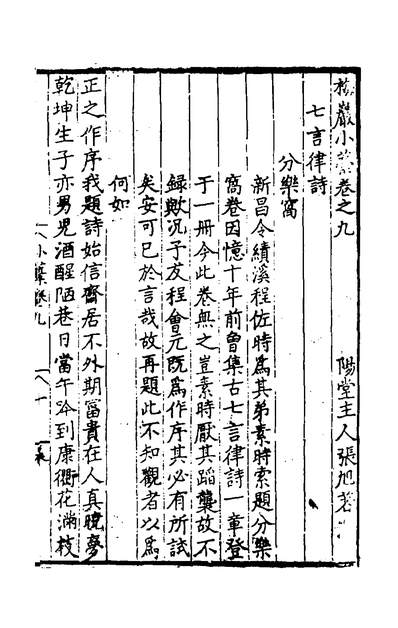 梅巖小藁卷之九
陽堂主人張旭著
七言律詩
分樂窩
新昌令績溪程佐時爲其弟素時索題分樂
窩卷因憶十年前曾集古七言律詩一章登
于一册今此卷無之豈素時厭其蹈襲故不
録歟況予友程會元既爲作序其必有所試
矣安可已於言哉故再題此不知觀者以爲
何如
正之作序我題詩始信齋居不外期富貴在人真曉夢
乾坤生子亦男兒酒醒陋巷日當午吟到康衢花滿枝
小藁卷九